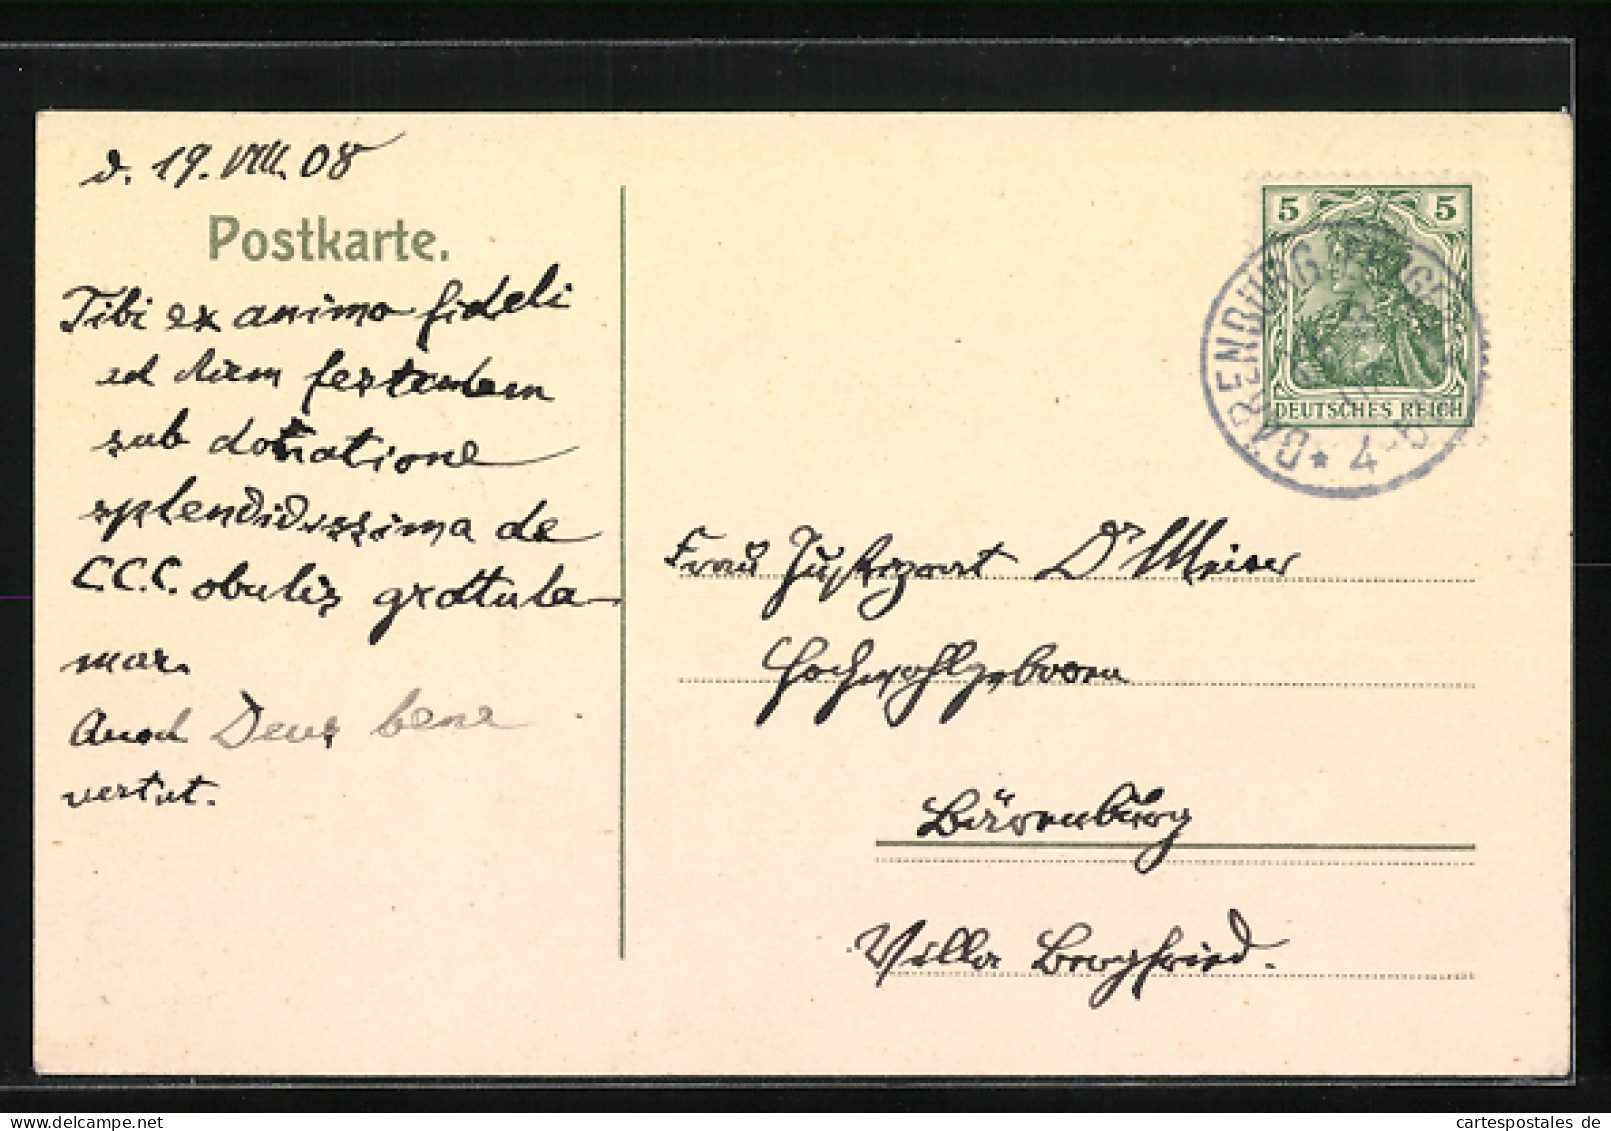 d. 19. VIII. 08
Postkarte.
Tibi ex animo fideli
ad diem festandum
sub donatione
splendidissima de
C.C.C. obulis gratula-
mar.
Deus bene
vertat.
5 5
DEUTSCHES REICH
BÄRENBURG
4-5
Frau Justizrat Dr Meiser
Hochwohlgeboren
Bärenburg
Villa Bergfried.
cartespostales de